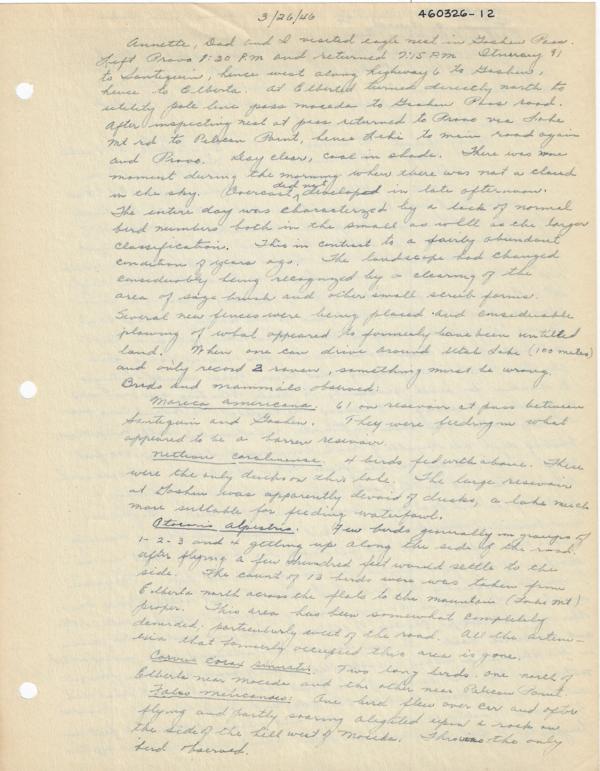 3/26/46
460326-12
Annette, Dad and I visited eagle nest in Goshen Pass.
Left Provo 8:30 P.M and returned 7:15 P.M Itinerary 91
to Santiquin, hence west along highway 6 to Goshen,
hence to Elberta. At Elberta turned directly north to
utility pole line pass mosida to Goshen Pass road.
After inspecting nest at pass returned to Provo via Lake
Mt rd to Pelican Point, hence Lehi to main road again
and Provo. Day clear, cool in shade. There was one
moment during the morning when there was not a cloud
in the sky. Overcast did not developed in late afternoon.
The entire day was characterized by a lack of normal
bird numbers both in the small as well as the larger
classification. This in contrast to a fairly abundant
condition of years ago. The landscape had changed
considerably being recognized by a clearing of the
area of sage brush and other small scrub forms.
Several new fences were being placed and considerable
plowing of what appeared to formerly have been untilled
land. When one can drive around Utah Lake (100 miles)
and only record 2 raven, something must be wrong.
Birds and mammals observed:
Mareca americana. 61 on reservoir at pass between
Santiquin and Goshen. They were feeding in what
appeared to be a barren reservoir.
Nettion carolinense. 4 birds fed with above. These
were the only ducks on this lake. The large reservoir
at Goshen was apparently devoid of ducks, a lake much
more suitable for feeding waterfowl.
Otocoris alpestris. Few birds generally in groups of
1-2-3 and 4 getting up along the side of the road.
after flying a few hundred feet would settle to the
side. The count of 13 birds were was taken from
Elberta north across the flats to the mountain (Lake Mt)
proper. This area has been somewhat completely
denuded, particularly west of the road. All the artem-
esia that formerly occupied this area is gone.
Corvus corax sinuatus. Two long birds. one north of
Elberta near Mosida and the other near Pelican Point.
Falco mexicanus: One bird flew over car and after
flying and partly soaring alighted upon a rock on
the side of the hill west of Mosida. This was the only
bird observed.